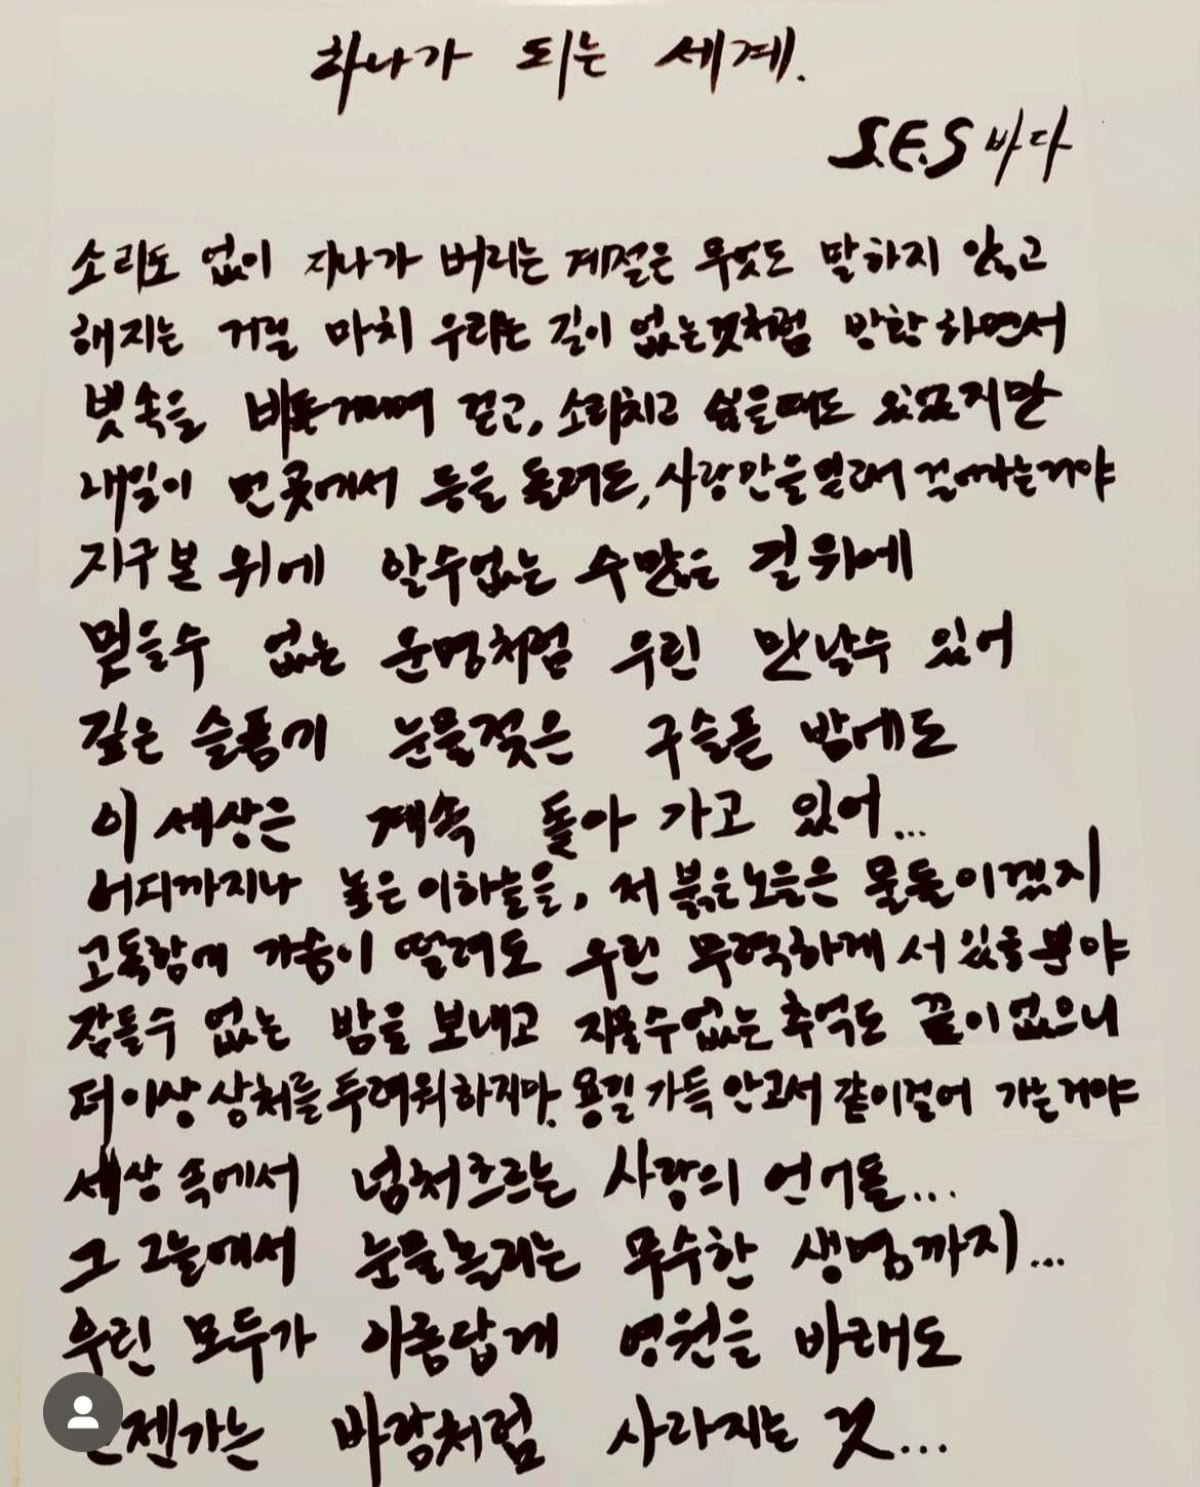 하나가 되는 세계.
S.E.S 바다
소리도 없이 지나가 버리는 계절은 무엇도 말하지 않고
해지는 거릴 마치 우리는 길이 없는것처럼 방황하면서
빗속을 비틀거리며 걷고, 소리치고 싶을때도 있었지만
내일이 먼곳에서 등을 돌려도, 사랑만을 위해서 걸어가는거야
지구본 위에 알수없는 수많은 길위에
믿을수 없는 운명처럼 우린 만날수 있어
깊은 슬픔에 눈물젖은 구슬픈 밤에도
이 세상은 계속 돌아 가고 있어...
어디까지나 높은 이하늘을, 저 붉은노을은 물들이겠지
고독함에 가슴이 떨려도 우린 무력하게 서 있을뿐야
잠들수 없는 밤을 보내고 지울수없는 추억도 끝이없으니
더이상 상처를 두려워하지마. 용길 가득 안고서 같이걸어 가는거야
세상 속에서 넘쳐흐르는 사랑의 언어들...
그 그늘에서 눈물흘리는 무수한 생명까지...
우린 모두가 아름답게 영원을 바래도
언젠가는 바람처럼 사라지는 것...